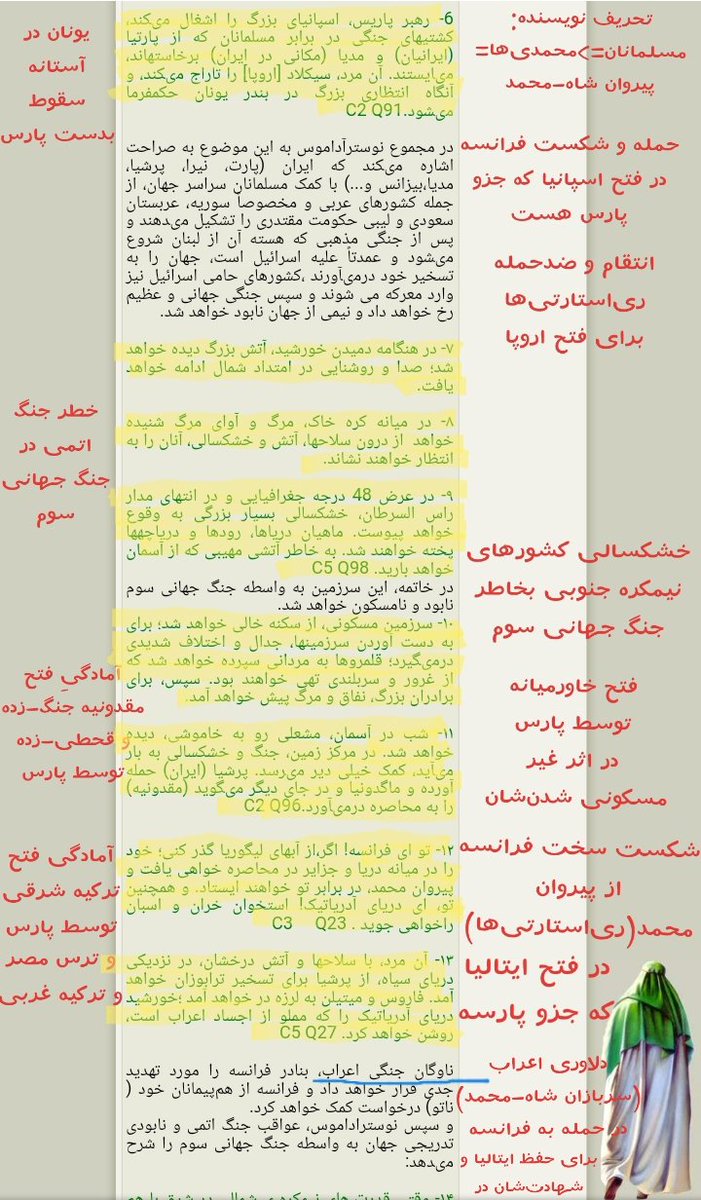 ۶- رهبر پاریس، اسپانیای بزرگ را اشغال می‌کند،
کشتیهای جنگی در برابر مسلمانان که از پارتیا
(ایرانیان) و مدیا (مکانی در ایران) برخاسته‌اند،
می‌ایستند. آن مرد، سیکلاد [اروپا] را تاراج می‌کند، و
آنگاه انتظاری بزرگ در بندر یونان حکمفرما
می‌شود.C2 Q91
در مجموع نوستراداموس به این موضوع به صراحت
اشاره می‌کند که ایران (پارت، نیرا، پرشیا،
مدیا،بیزانس و...) با کمک مسلمانان سراسر جهان، از
جمله کشورهای عربی و مخصوصاً سوریه، عربستان
سعودی و لیبی حکومت مقتدری را تشکیل می‌دهند و
پس از جنگی مذهبی که هسته آن از لبنان شروع
می‌شود و عمدتاً علیه اسرائیل است، جهان را به
تسخیر خود درمی‌آورند ،کشورهای حامی اسرائیل نیز
وارد معرکه می شوند و سپس جنگی جهانی و عظیم
رخ خواهد داد و نیمی از جهان نابود خواهد شد.
۷- در هنگامه دمیدن خورشید، آتش بزرگ دیده خواهد
شد؛ صدا و روشنایی در امتداد شمال ادامه خواهد
یافت.
۸- در میانه کره خاک، مرگ و آوای مرگ شنیده
خواهد از درون سلاحها، آتش و خشکسالی، آنان را به
انتظار خواهند نشاند.
۹- در عرض 48 درجه جغرافیایی و در انتهای مدار
راس السرطان، خشکسالی بسیار بزرگی به وقوع
خواهد پیوست. ماهیان دریاها، رودها و دریاچه‌ها
پخته خواهند شد. به خاطر آتشی مهیبی که از آسمان
خواهد بارید. C5 Q98
در خاتمه، این سرزمین به واسطه جنگ جهانی سوم
نابود و نامسکون خواهد شد.
۱۰- سرزمین مسکونی، از سکنه خالی خواهد شد؛ برای
به دست آوردن سرزمینها، جدال و اختلاف شدیدی
درمی‌گیرد؛ قلمروها به مردانی سپرده خواهد شد که
از غرور و سربلندی تهی خواهند بود. سپس، برای
برادران بزرگ، نفاق و مرگ پیش خواهد آمد.
۱۱- شب در آسمان، مشعلی رو به خاموشی، دیده
خواهد شد. در مرکز زمین، جنگ و خشکسالی به بار
می‌آید، کمک خیلی دیر می‌رسد. پرشیا (ایران) حمله
آورده و ماگدونیا و در جای دیگر می‌گوید (مقدونیه)
را به محاصره درمی‌آورد.C2 Q96
۱۲- تو ای فرانسه! اگر،از آبهای لیگوریا گذر کنی؛ خود
را در میانه دریا و جزایر در محاصره خواهی یافت و
پیروان محمد، در برابر تو خواهند ایستاد. و همچنین
تو، ای دریای آدریاتیک! استخوان خران و اسبان
راخواهی جوید . C3 Q23
۱۳- آن مرد، با سلاحها و آتش درخشان، در نزدیکی
دریای سیاه، از پرشیا برای تسخیر ترابوزان خواهد
آمد. فاروس و میتیلن به لرزه در خواهد آمد ؛خورشید
دریای آدریاتیک را که مملو از اجساد اعراب است،
روشن خواهد کرد. C5 Q27
ناوگان جنگی اعراب، بنادر فرانسه را مورد تهدید
جدی قرار خواهد داد و فرانسه از هم‌پیمانان خود (
ناتو) درخواست کمک خواهد کرد.
و سپس نوستراداموس، عواقب جنگ اتمی و نابودی
تدریجی جهان به واسطه جنگ جهانی سوم را شرح
می‌دهد:
تحریف نویسنده:
مسلمانان=>محمدی‌ها=
پیروان شاه-محمد
حمله و شکست فرانسه
در فتح اسپانیا که جزو
پارس هست
انتقام و ضدحمله
ری‌استارتی‌ها
برای فتح اروپا
خشکسالی کشورهای
نیمکره جنوبی بخاطر
جنگ جهانی سوم
فتح خاورمیانه
توسط پارس
در اثر غیر
مسکونی شدن‌شان
شکست سخت فرانسه
از پیروان
محمد(ری‌استارتی‌ها)
در فتح ایتالیا
که جزو پارسه
دلاوری اعراب
(سربازان شاه-محمد)
در حمله به فرانسه
برای حفظ ایتالیا و
شهادت‌شان در
یونان در
آستانه
سقوط
بدست پارس
خطر جنگ
اتمی در
جنگ جهانی
سوم
آمادگیِ فتح
مقدونیه جنگ-زده
و قحطی-زده
توسط پارس
آمادگی فتح
ترکیه شرقی
توسط پارس
و ترس مصر
و ترکیه غربی